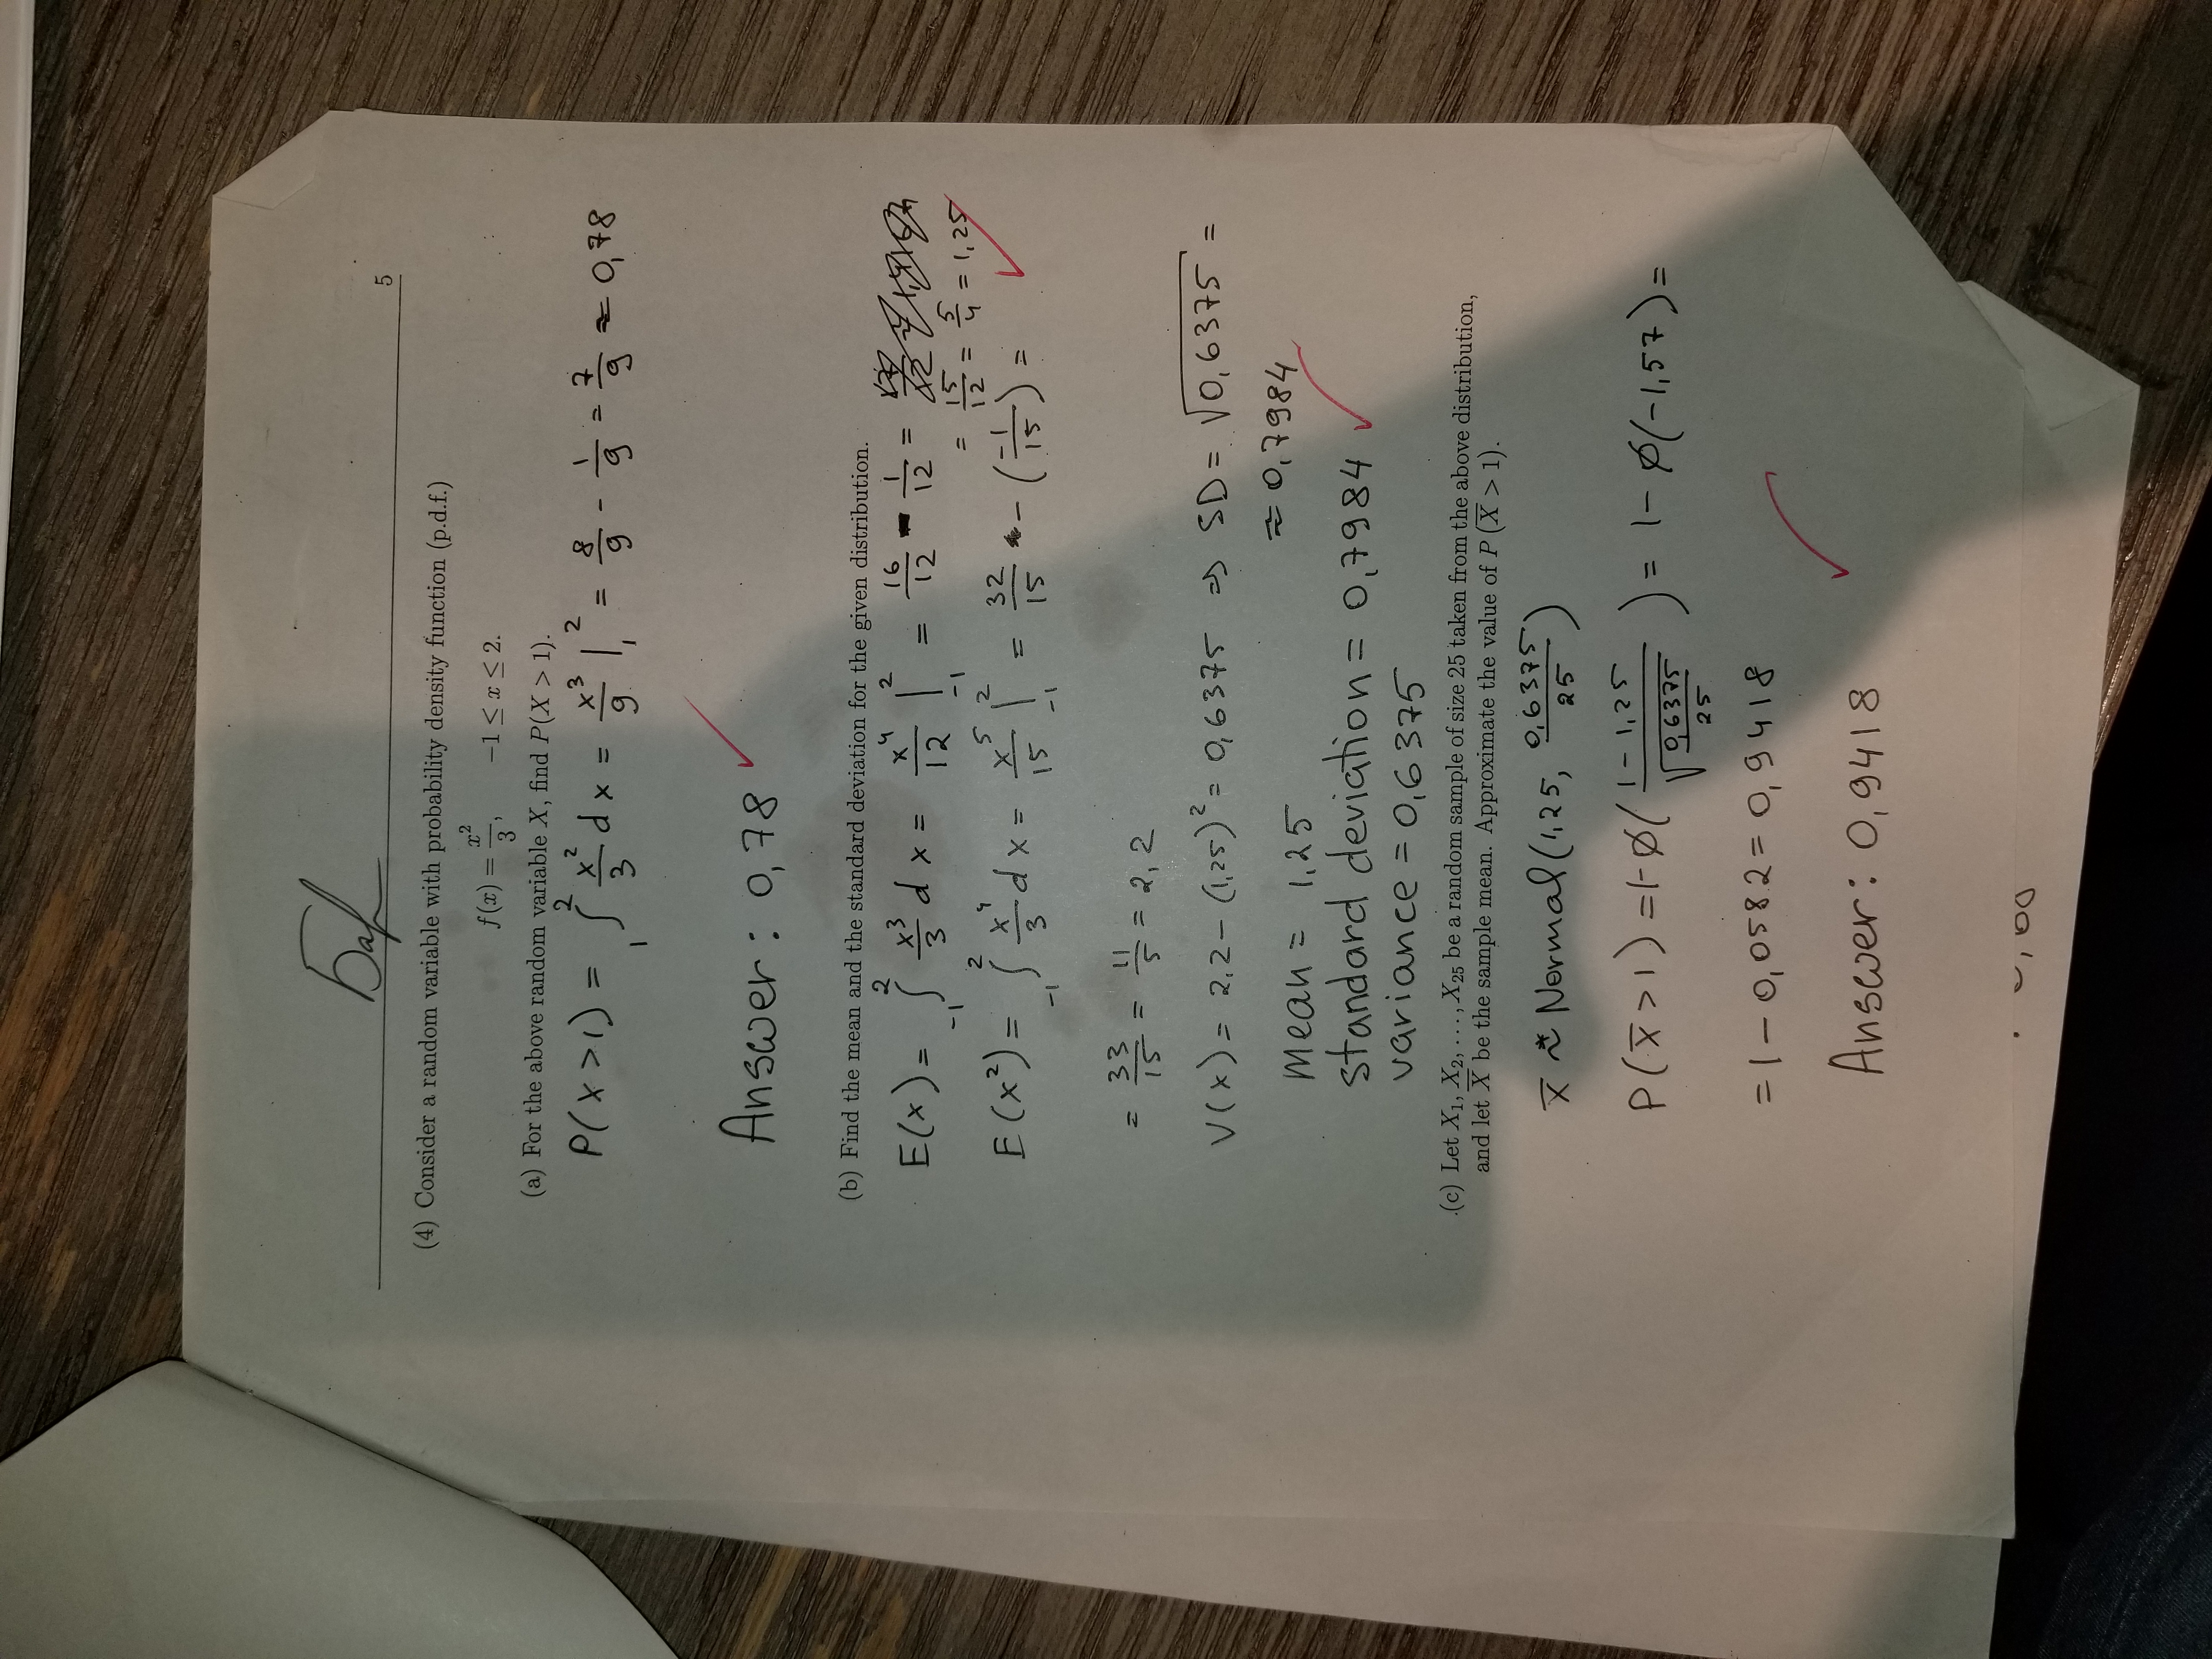 Бар
5
(4) Consider a random variable with probability density function (p.d.f.)
f(x) = x²/3, −1 ≤ x ≤ 2.
(a) For the above random variable X, find P(X > 1).
P(x>1) = ∫₁² x²/3 dx = x³/9 |₁² = 8/9 - 1/9 = 7/9 ≈ 0,78
Answer: 0,78
(b) Find the mean and the standard deviation for the given distribution.
E(x) = ∫₋₁² x³/3 dx = x⁴/12 |₋₁² = 16/12 - 1/12 =
= 15/12 = 5/4 = 1,25
E(x²) = ∫₋₁² x⁴/3 dx = x⁵/15 |₋₁² = 32/15 - (-1/15) =
= 33/15 = 11/5 = 2,2
V(x) = 2,2 - (1,25)² = 0,6375 ⇒ SD = √0,6375 =
≈ 0,7984
mean = 1,25
standard deviation = 0,7984
variance = 0,6375
(c) Let X₁, X₂, ..., X₂₅ be a random sample of size 25 taken from the above distribution,
and let X̅ be the sample mean. Approximate the value of P(X̅ > 1).
x̅ ≈ Normal(1,25, 0,6375/25)
P(x̅>1) = 1-Ø((1-1,25)/√(0,6375/25)) = 1-Ø(-1,57) =
= 1 - 0,0582 = 0,9418
Answer: 0,9418